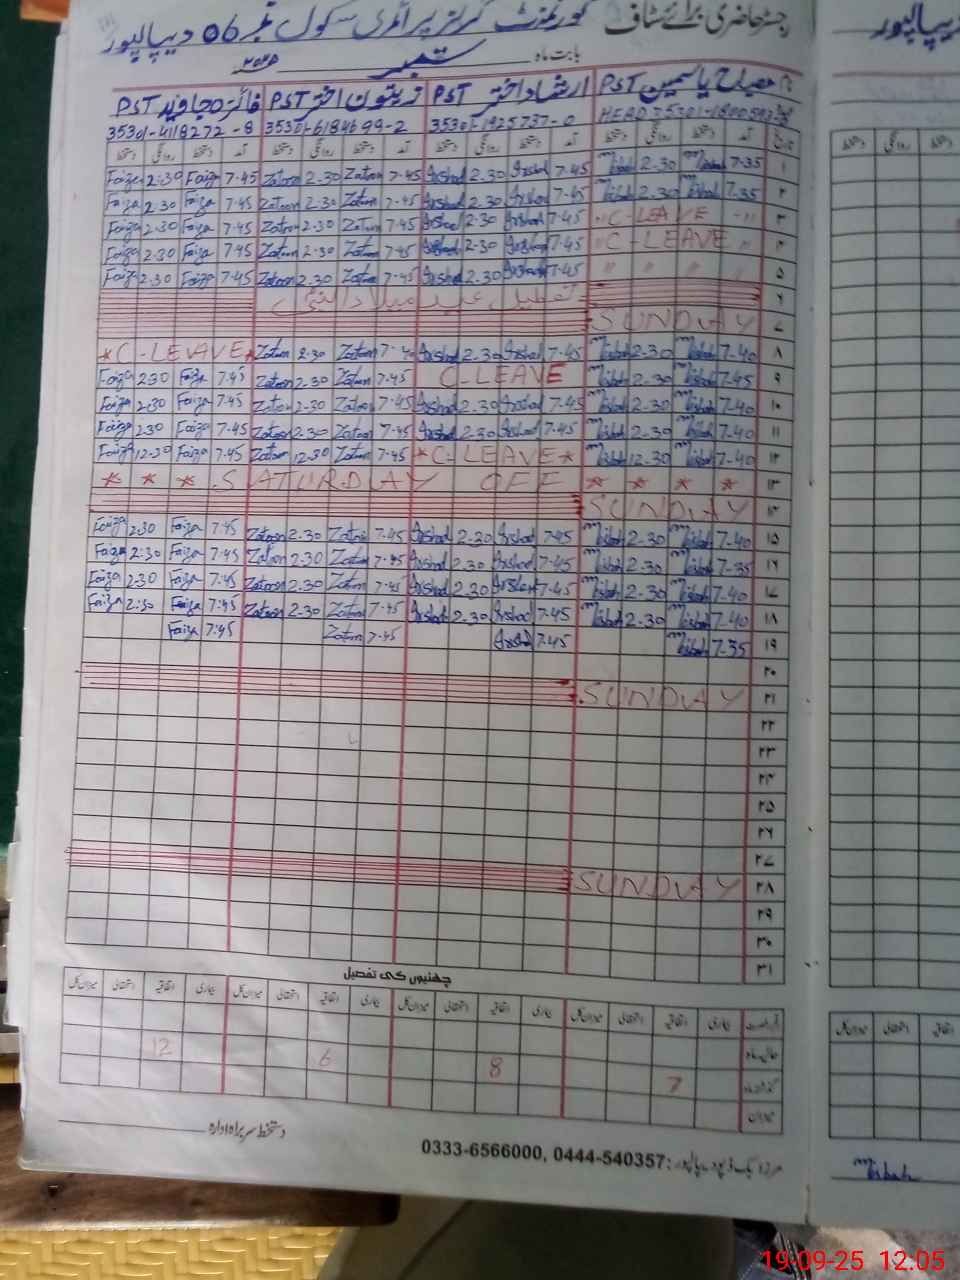 رجسٹر حاضری برائے سٹاف گورنمنٹ گرلز پرائمری سکول نمبر 06 دیپالپور
بابت ماہ ستمبر ۲۰۲۵
مصباح یاسمین PST ارشاد اختر PST زیتون اختر PST فائزہ جاوید PST
HEAD 35301-1925737-0 35301-6184699-2 35301-4118272-8
تاریخ آمد دستخط روانگی دستخط آمد دستخط روانگی دستخط آمد دستخط روانگی دستخط آمد دستخط روانگی دستخط
۱ 7-35 Misbah 2-30 Misbah 7-45 Arshad 2-30 Arshad 7-45 Zatoon 2-30 Zatoon 7-45 Faiza 2:30 Faiza
۲ 7-35 Misbah 2-30 Misbah 7-45 Arshad 2-30 Arshad 7-45 Zatoon 2-30 Zatoon 7-45 Faiza 2-30 Faiza
۳ " C-LEAVE " 7-45 Arshad 2-30 Arshad 7-45 Zatoon 2-30 Zatoon 7-45 Faiza 2-30 Faiza
۴ " C-LEAVE " 7-45 Arshad 2-30 Arshad 7-45 Zatoon 2-30 Zatoon 7-45 Faiza 2-30 Faiza
۵ " " " " 7-45 Arshad 2-30 Arshad 7-45 Zatoon 2-30 Zatoon 7-45 Faiza 2-30 Faiza
۶ تعطیل عید میلاد النبی
۷ SUNDAY
۸ 7-40 Misbah 2-30 Misbah 7-45 Arshad 2-30 Arshad Zatoon 2-30 Zatoon * C-LEAVE *
۹ 7-45 Misbah 2-30 Misbah C-LEAVE 7-45 Zatoon 2-30 Zatoon 7-45 Faiza 2-30 Faiza
۱۰ 7-40 Misbah 2-30 Misbah 7-45 Arshad 2-30 Arshad 7-45 Zatoon 2-30 Zatoon 7-45 Faiza 2-30 Faiza
۱۱ 7-40 Misbah 2-30 Misbah 7-45 Arshad 2-30 Arshad 7-45 Zatoon 2-30 Zatoon 7-45 Faiza 2-30 Faiza
۱۲ 7-40 Misbah 12-30 Misbah * C-LEAVE * 7-45 Zatoon 12-30 Zatoon 7-45 Faiza 12-30 Faiza
۱۳ * * * SATURDAY OFF * * * *
۱۴ SUNDAY
۱۵ 7-40 Misbah 2-30 Misbah 7-45 Arshad 2-30 Arshad 7-45 Zatoon 2-30 Zatoon 7-45 Faiza 2-30 Faiza
۱۶ 7-35 Misbah 2-30 Misbah 7-45 Arshad 2-30 Arshad 7-45 Zatoon 2-30 Zatoon 7-45 Faiza 2:30 Faiza
۱۷ 7-40 Misbah 2-30 Misbah 7-45 Arshad 2-30 Arshad 7-45 Zatoon 2-30 Zatoon 7:45 Faiza 2-30 Faiza
۱۸ 7-40 Misbah 2-30 Misbah 7-45 Arshad 2-30 Arshad 7-45 Zatoon 2-30 Zatoon 7:45 Faiza 2:30 Faiza
۱۹ 7-35 Misbah 7-45 Arshad 7-45 Zatoon 7:45 Faiza
۲۰
۲۱ SUNDAY
۲۲
۲۳
۲۴
۲۵
۲۶
۲۷
۲۸ SUNDAY
۲۹
۳۰
۳۱
چھٹیوں کی تفصیل
بیماری اتفاقیہ استحقاقی میزان کل بیماری اتفاقیہ استحقاقی میزان کل بیماری اتفاقیہ استحقاقی میزان کل بیماری اتفاقیہ استحقاقی میزان کل
حالیہ ماہ
گذشتہ ماہ 7 8 6 12
میزان
دستخط سربراہ ادارہ
مرزا بک ڈپو دیپالپور: 0333-6566000, 0444-540357
Misbah
19-09-25 12:05